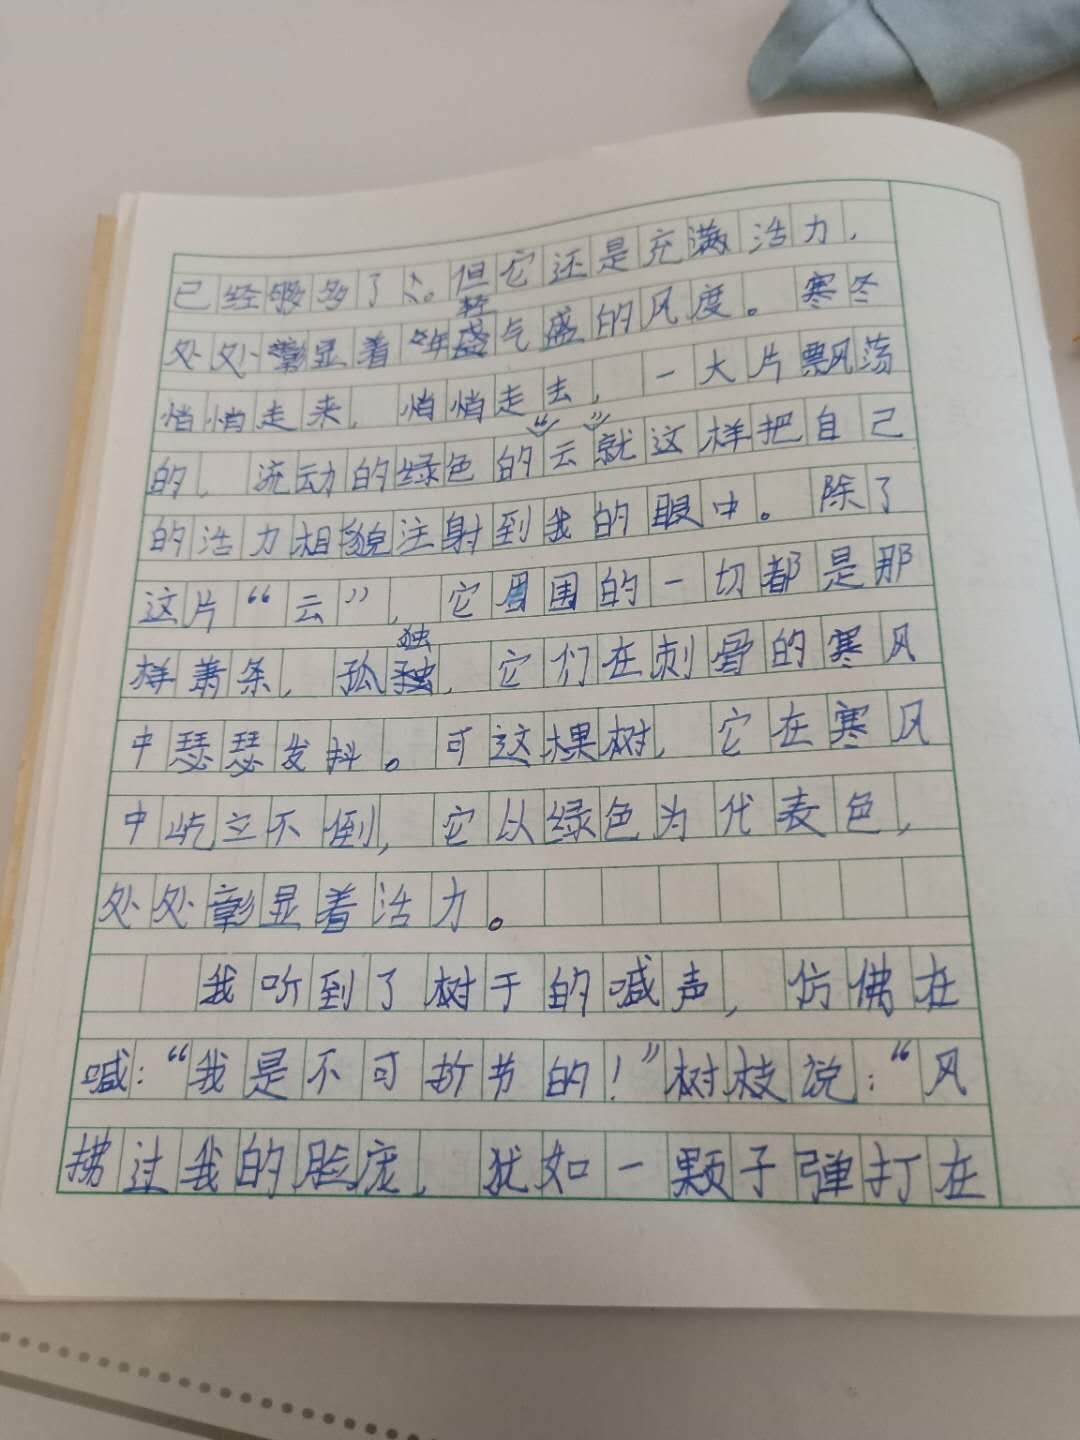 已经够多了。但它还是充满活力，
处处彰显着“年轻气盛”的风度。寒冬
悄悄走来，悄悄走去，一大片飘荡
的，流动的绿色的“云”就这样把自己
的活力相貌注射到我的眼中。除了
这片“云”，它周围的一切都是那
样萧条，孤独，它们在刺骨的寒风
中瑟瑟发抖。可这棵树，它在寒风
中屹立不倒，它以绿色为代表色，
处处彰显着活力。
我听到了树干的喊声，仿佛在
喊：“我是不可折节的！”树枝说：“风
拂过我的脸庞，犹如一颗子弹打在